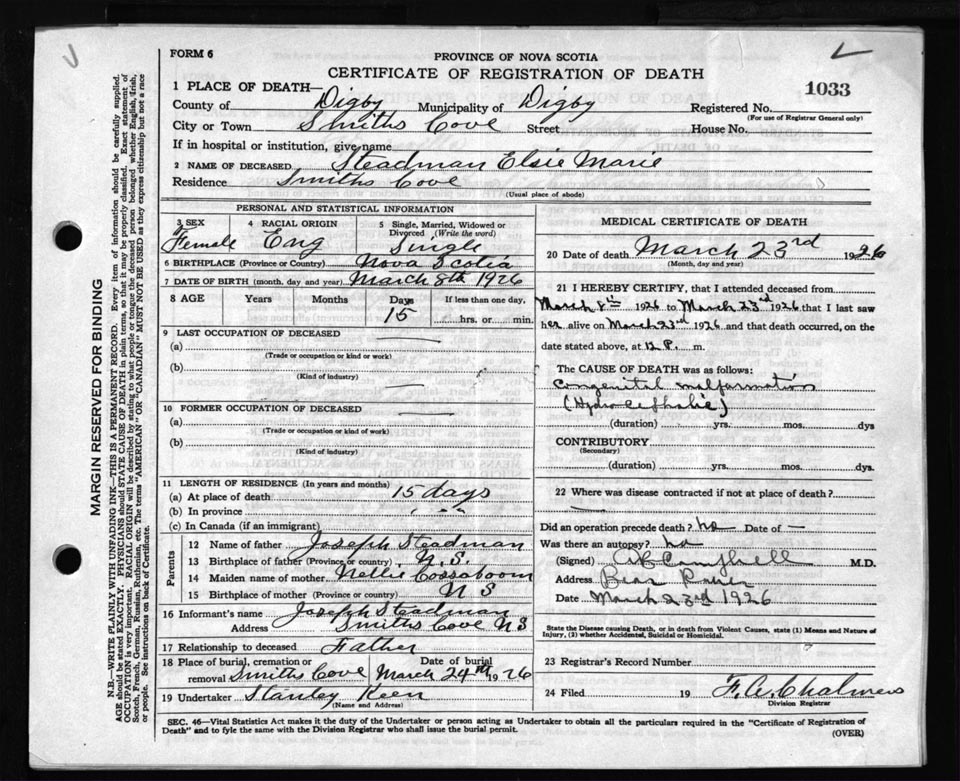 FORM 6
PROVINCE OF NOVA SCOTIA
CERTIFICATE OF REGISTRATION OF DEATH
1033
1 PLACE OF DEATH—
County of Digby Municipality of Digby Registered No.
(For use of Registrar General only)
City or Town Smiths Cove Street House No.
If in hospital or institution, give name
2 NAME OF DECEASED Steadman Elsie Marie
Residence Smiths Cove
(Usual place of abode)
PERSONAL AND STATISTICAL INFORMATION
3 SEX 4 RACIAL ORIGIN 5 Single, Married, Widowed or Divorced (Write the word)
Female Eng Single
6 BIRTHPLACE (Province or Country) Nova Scotia
7 DATE OF BIRTH (month, day and year) March 8th 1926
8 AGE Years Months Days If less than one day,
15 hrs. or min.
9 LAST OCCUPATION OF DECEASED
(a)
(Trade or occupation or kind or work)
(b)
(Kind of industry)
10 FORMER OCCUPATION OF DECEASED
(a)
(Trade or occupation or kind or work)
(b)
(Kind of industry)
11 LENGTH OF RESIDENCE (In years and months)
(a) At place of death 15 days
(b) In province " "
(c) In Canada (if an immigrant)
Parents
12 Name of father Joseph Steadman
13 Birthplace of father (Province or country) N.S.
14 Maiden name of mother Nellie Cossaboom
15 Birthplace of mother (Province or country) N S
16 Informant's name Joseph Steadman
Address Smiths Cove N S
17 Relationship to deceased Father
18 Place of burial, cremation or removal Smiths Cove Date of burial March 24th 1926
19 Undertaker Stanley Keen
(Name and Address)
MEDICAL CERTIFICATE OF DEATH
20 Date of death March 23rd 1926
(Month, day and year)
21 I HEREBY CERTIFY, that I attended deceased from
March 8th 1926 to March 23rd 1926 that I last saw
her alive on March 23rd 1926 and that death occurred, on the
date stated above, at 12 P. m.
The CAUSE OF DEATH was as follows:
Congenital malformation
(Hydrocephalic)
(duration) yrs. mos. dys
CONTRIBUTORY
(Secondary)
(duration) yrs. mos. dys.
22 Where was disease contracted if not at place of death?
Did an operation precede death? no Date of —
Was there an autopsy? no
(Signed) Campbell M.D.
Address Bear River
Date March 23rd 1926
State the Disease causing Death, or in death from Violent Causes, state (1) Means and Nature of
Injury, (2) whether Accidental, Suicidal or Homicidal.
23 Registrar's Record Number
24 Filed 19 F.W. Chalmers
Division Registrar
SEC. 46—Vital Statistics Act makes it the duty of the Undertaker or person acting as Undertaker to obtain all the particulars required in the "Certificate of Registration of
Death" and to fyle the same with the Division Registrar who shall issue the burial permit.
(OVER)
MARGIN RESERVED FOR BINDING
N.B.—WRITE PLAINLY WITH UNFADING INK—THIS IS A PERMANENT RECORD. Every item of information should be carefully supplied.
AGE should be stated EXACTLY. PHYSICIANS should STATE CAUSE OF DEATH in plain terms, so that it may be properly classified. Exact statement of
OCCUPATION is very important. RACIAL ORIGIN will be described by stating to what people or tongue the deceased person belonged whether English, Irish,
Scotch, French, German, Russian, Ruthenian, etc. The terms "AMERICAN" OR "CANADIAN" MUST NOT BE USED as they express citizenship but not a race
or people. See instructions on back of Certificate.